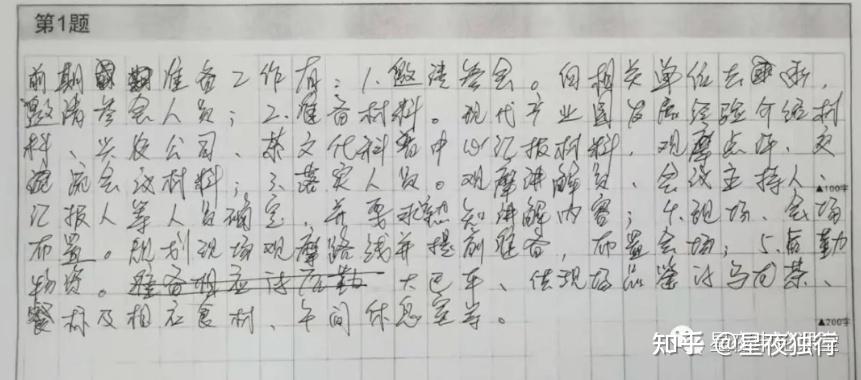 第1题
前期准备工作有：1.邀请参会。向相关单位去函，
邀请参会人员；2.准备材料。现代产业园发展经验介绍材
料、兴农公司、茶文化科普中心汇报材料、观摩点评、交
流会议材料；3.落实人员。观摩讲解员、会议主持人、
汇报人等人员确定，并要求熟知讲解内容；4.现场、会场
布置。规划现场观摩路线并提前准备，布置会场；5.后勤
物资。大巴车、供现场品鉴的茶、
餐标及相应食材、午间休息室等。
▲100字
▲200字
知乎 @星夜独行